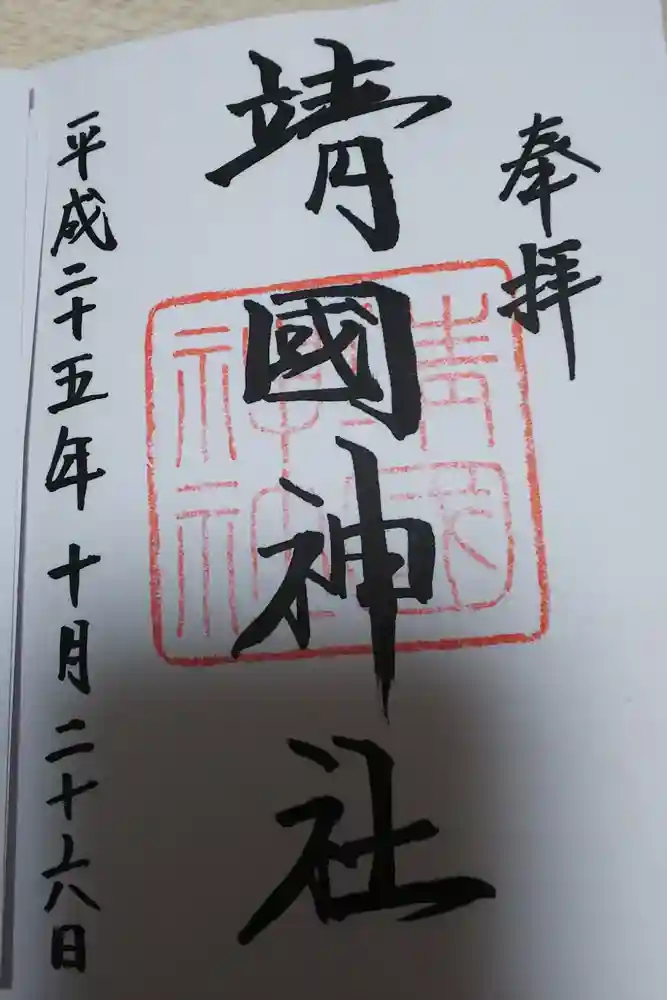 奉拝
靖國神社
平成二十五年十月二十六日
靖國
神社